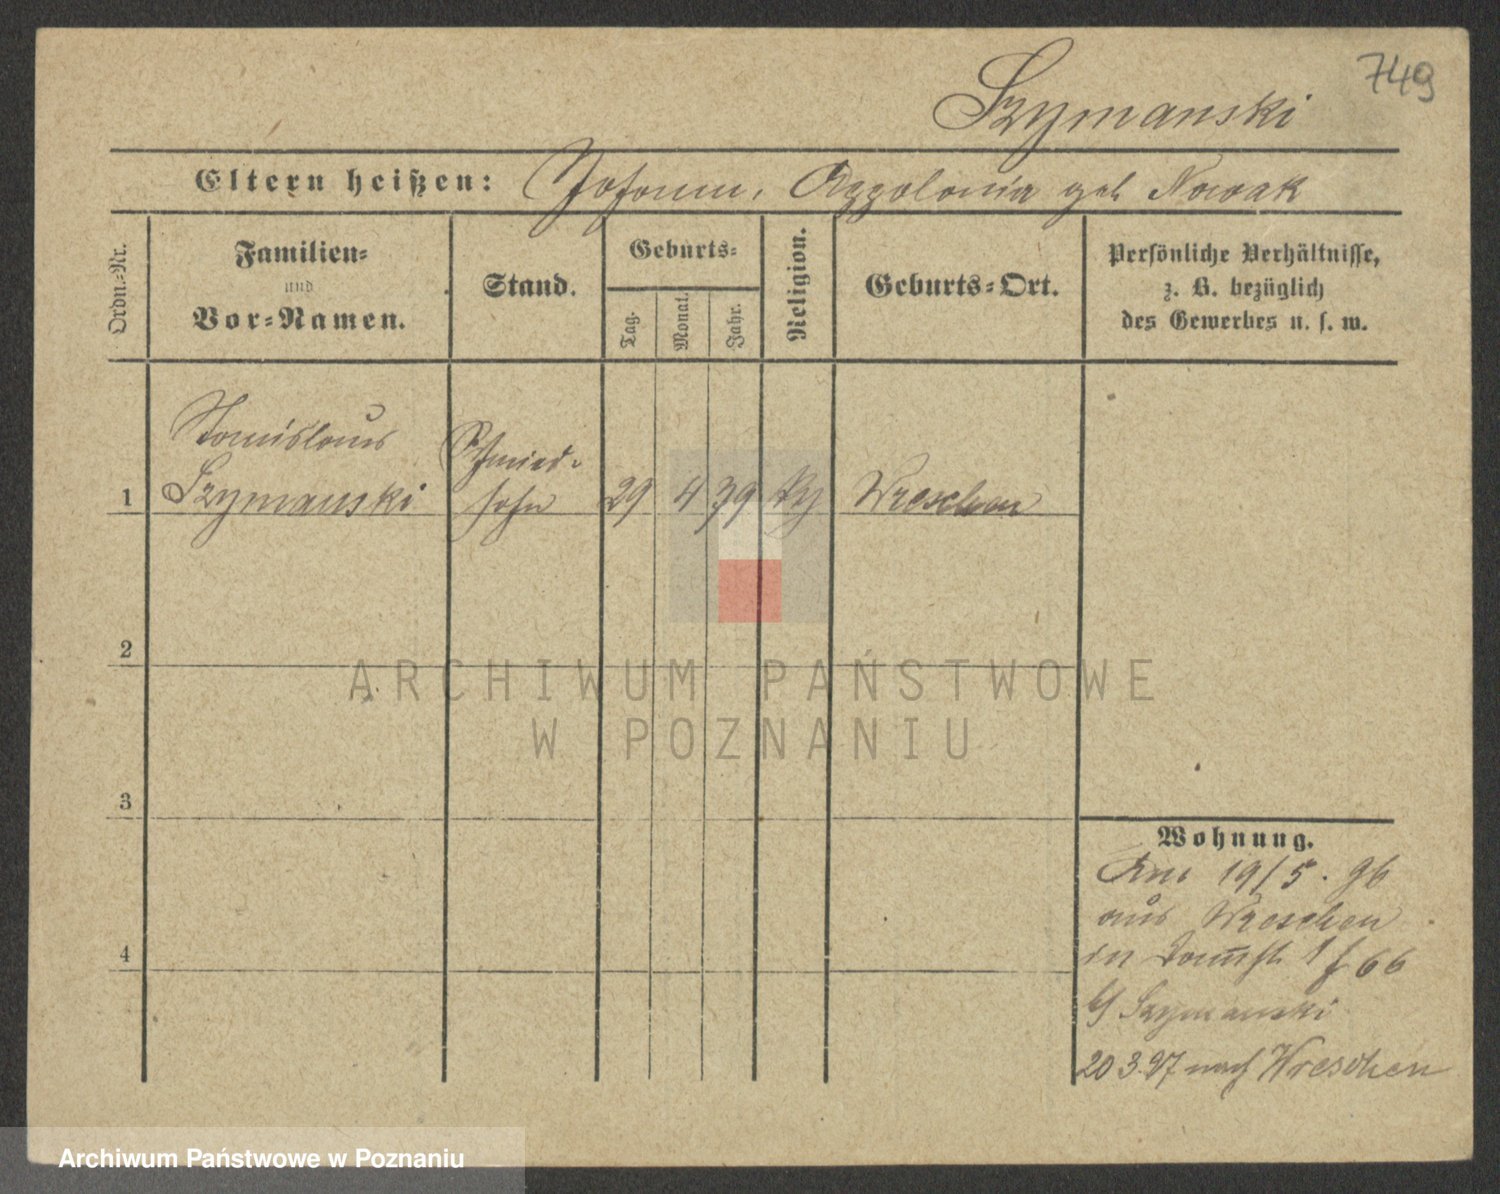 749
Szymanski
Eltern heißen: Johann, Appolonia geb Nowak
Ordn.-Nr.
Familien-
und
Vor-Namen.
Stand.
Geburts-
Tag.
Monat.
Jahr.
Religion.
Geburts-Ort.
Persönliche Verhältnisse,
z. B. bezüglich
des Gewerbes u. s. w.
Stanislaus
Szymanski
Schmied-
sohn
1
29
4
79
Wreschen
2
3
4
Wohnung.
19/5. 96
aus Wreschen
in
66
b/ Szymanski
20 3.97 nach Wreschen
ARCHIWUM PAŃSTWOWE
W POZNANIU
Archiwum Państwowe w Poznaniu